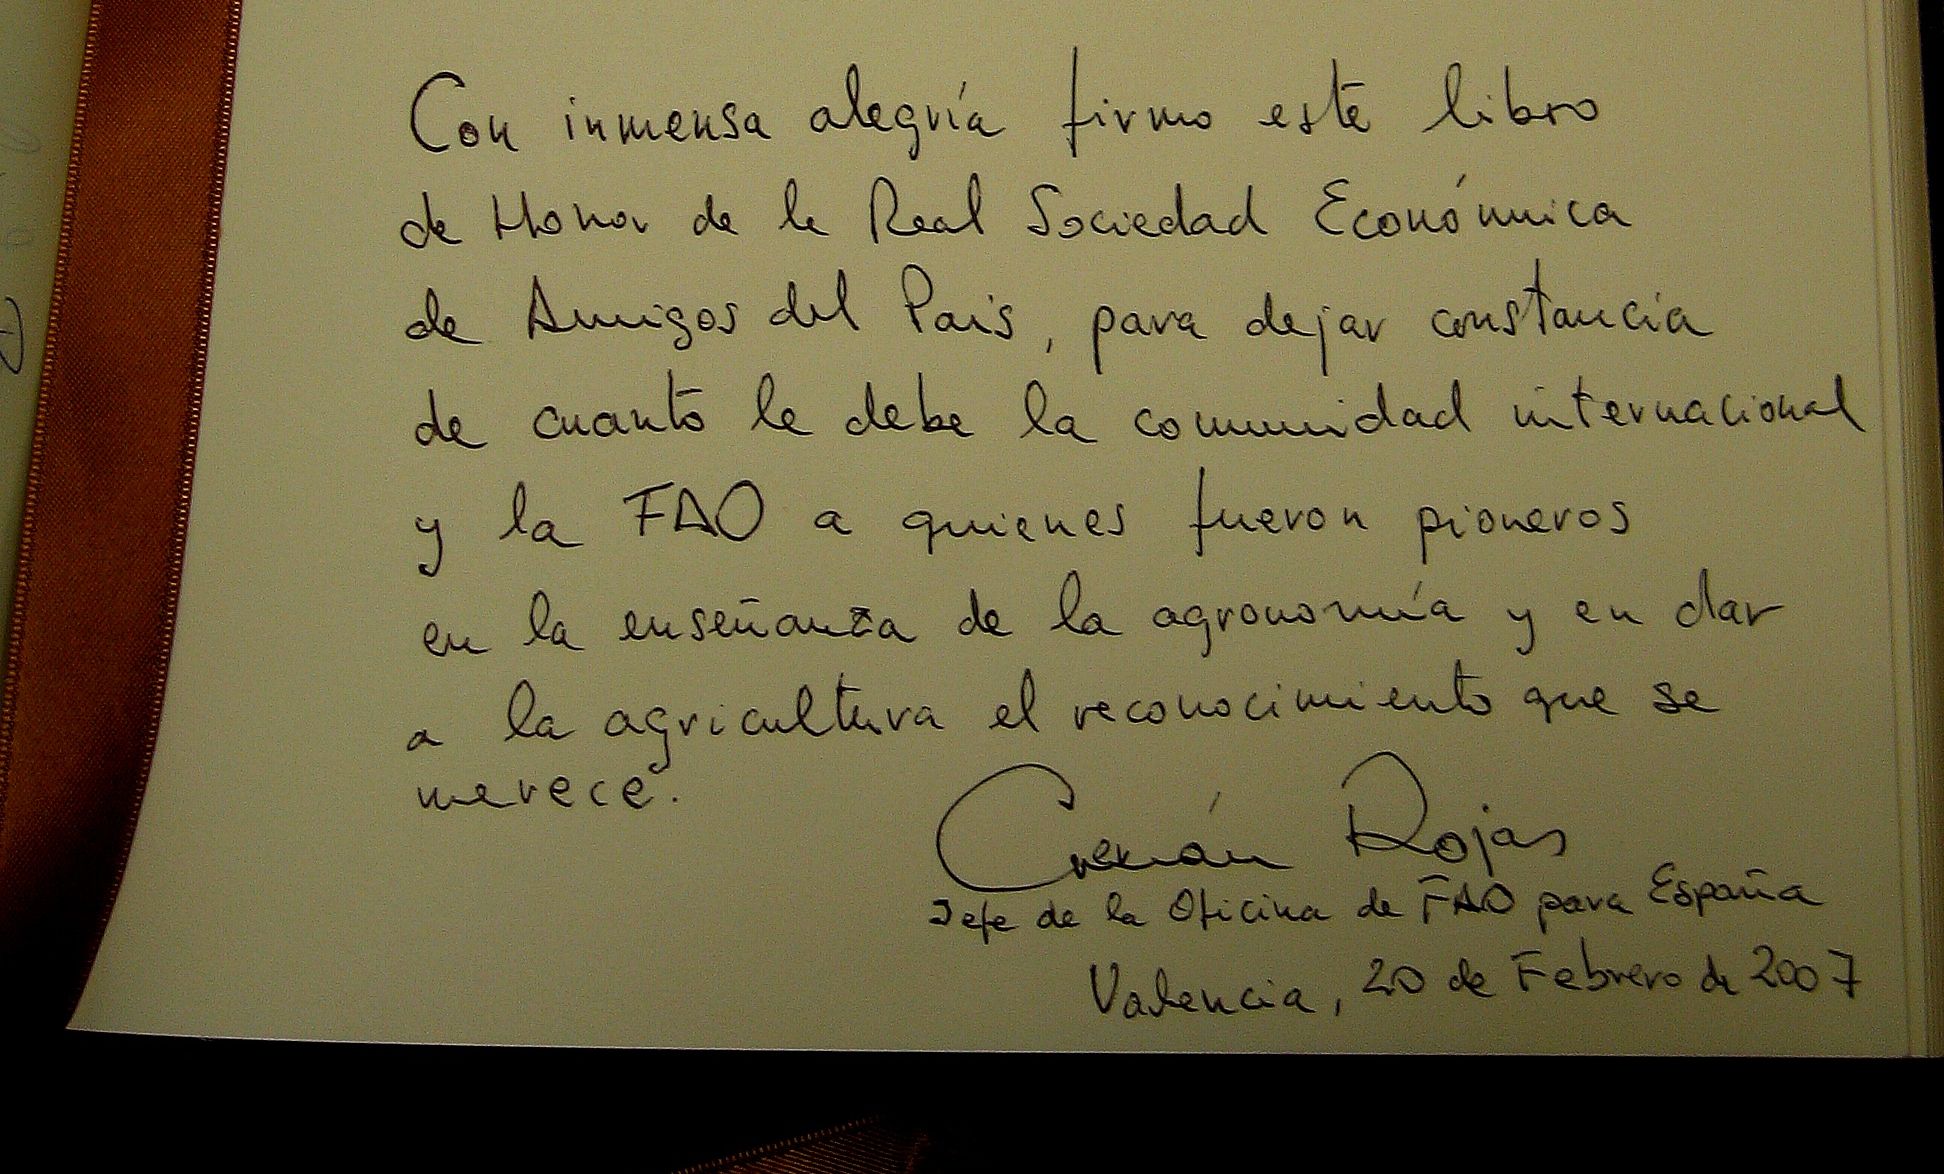 Con inmensa alegría firmo este libro
de Honor de la Real Sociedad Económica
de Amigos del País, para dejar constancia
de cuanto le debe la comunidad internacional
y la FAO a quienes fueron pioneros
en la enseñanza de la agronomía y en dar
a la agricultura el reconocimiento que se
merece.
Germán Rojas
Jefe de la Oficina de FAO para España
Valencia, 20 de Febrero de 2007